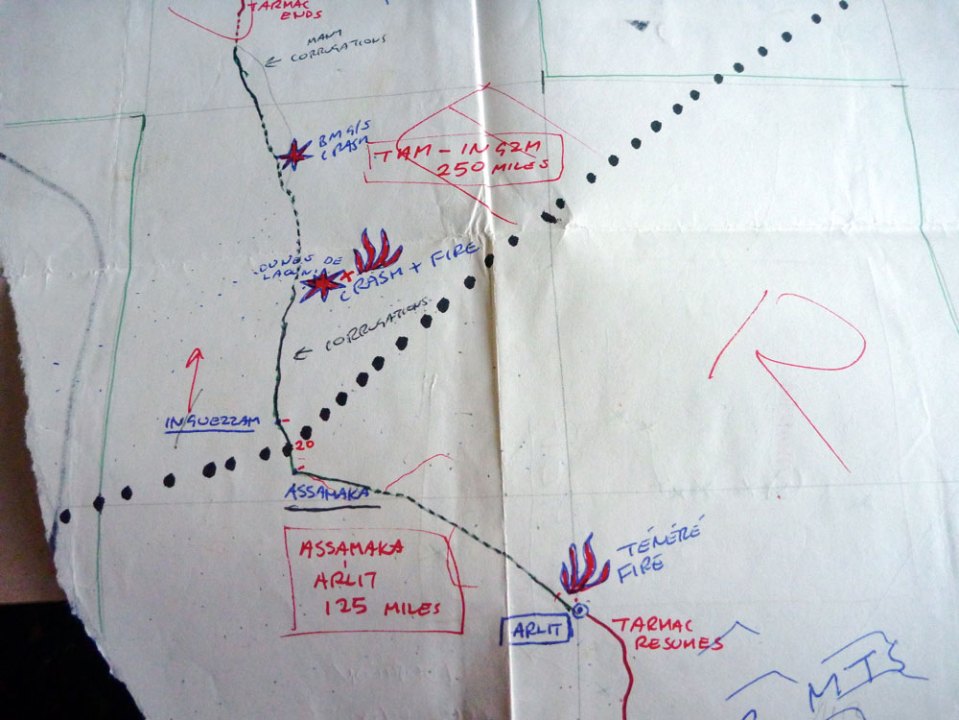 TARMAC
ENDS
MANY
CORRUGATIONS
CRASH
TAM - IN GZM
250 MILES
DUNES DE
CRASH + FIRE
CORRUGATIONS
IN GUEZZAM
20
ASSAMAKA
ASSAMAKA
ARLIT
125 MILES
TÉNÉRÉ
FIRE
ARLIT
TARMAC
RESUMES
R